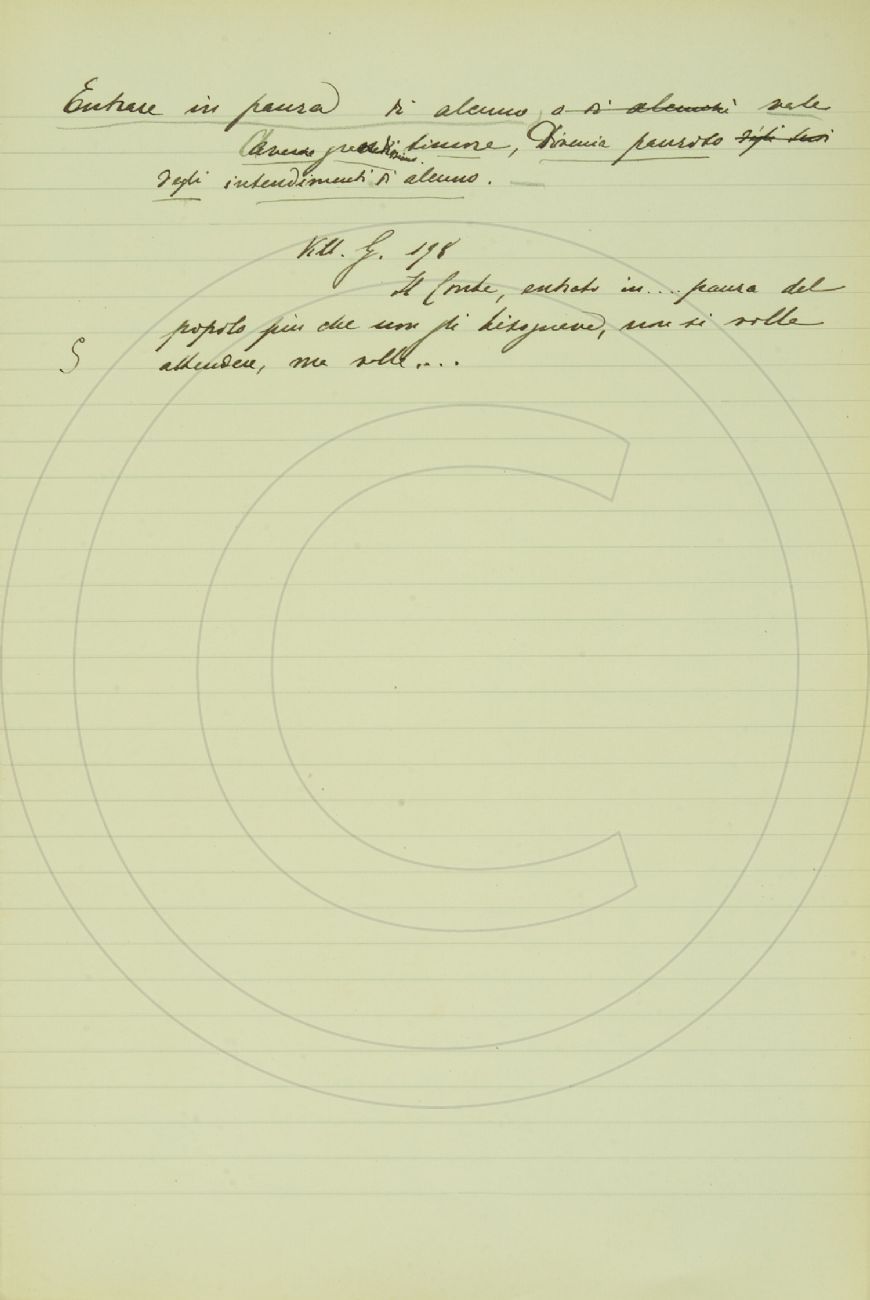 Entrare in paura di alcuno o di alcunchè vale
Avere grandissimo timore, Divenir pauroso degli suoi
degli intendimenti di alcuno.
Vill. G. 198
Il Conte, entrato in.... paura del
popolo più che non gli bisognava, non si volle
S attendere, ma volle....